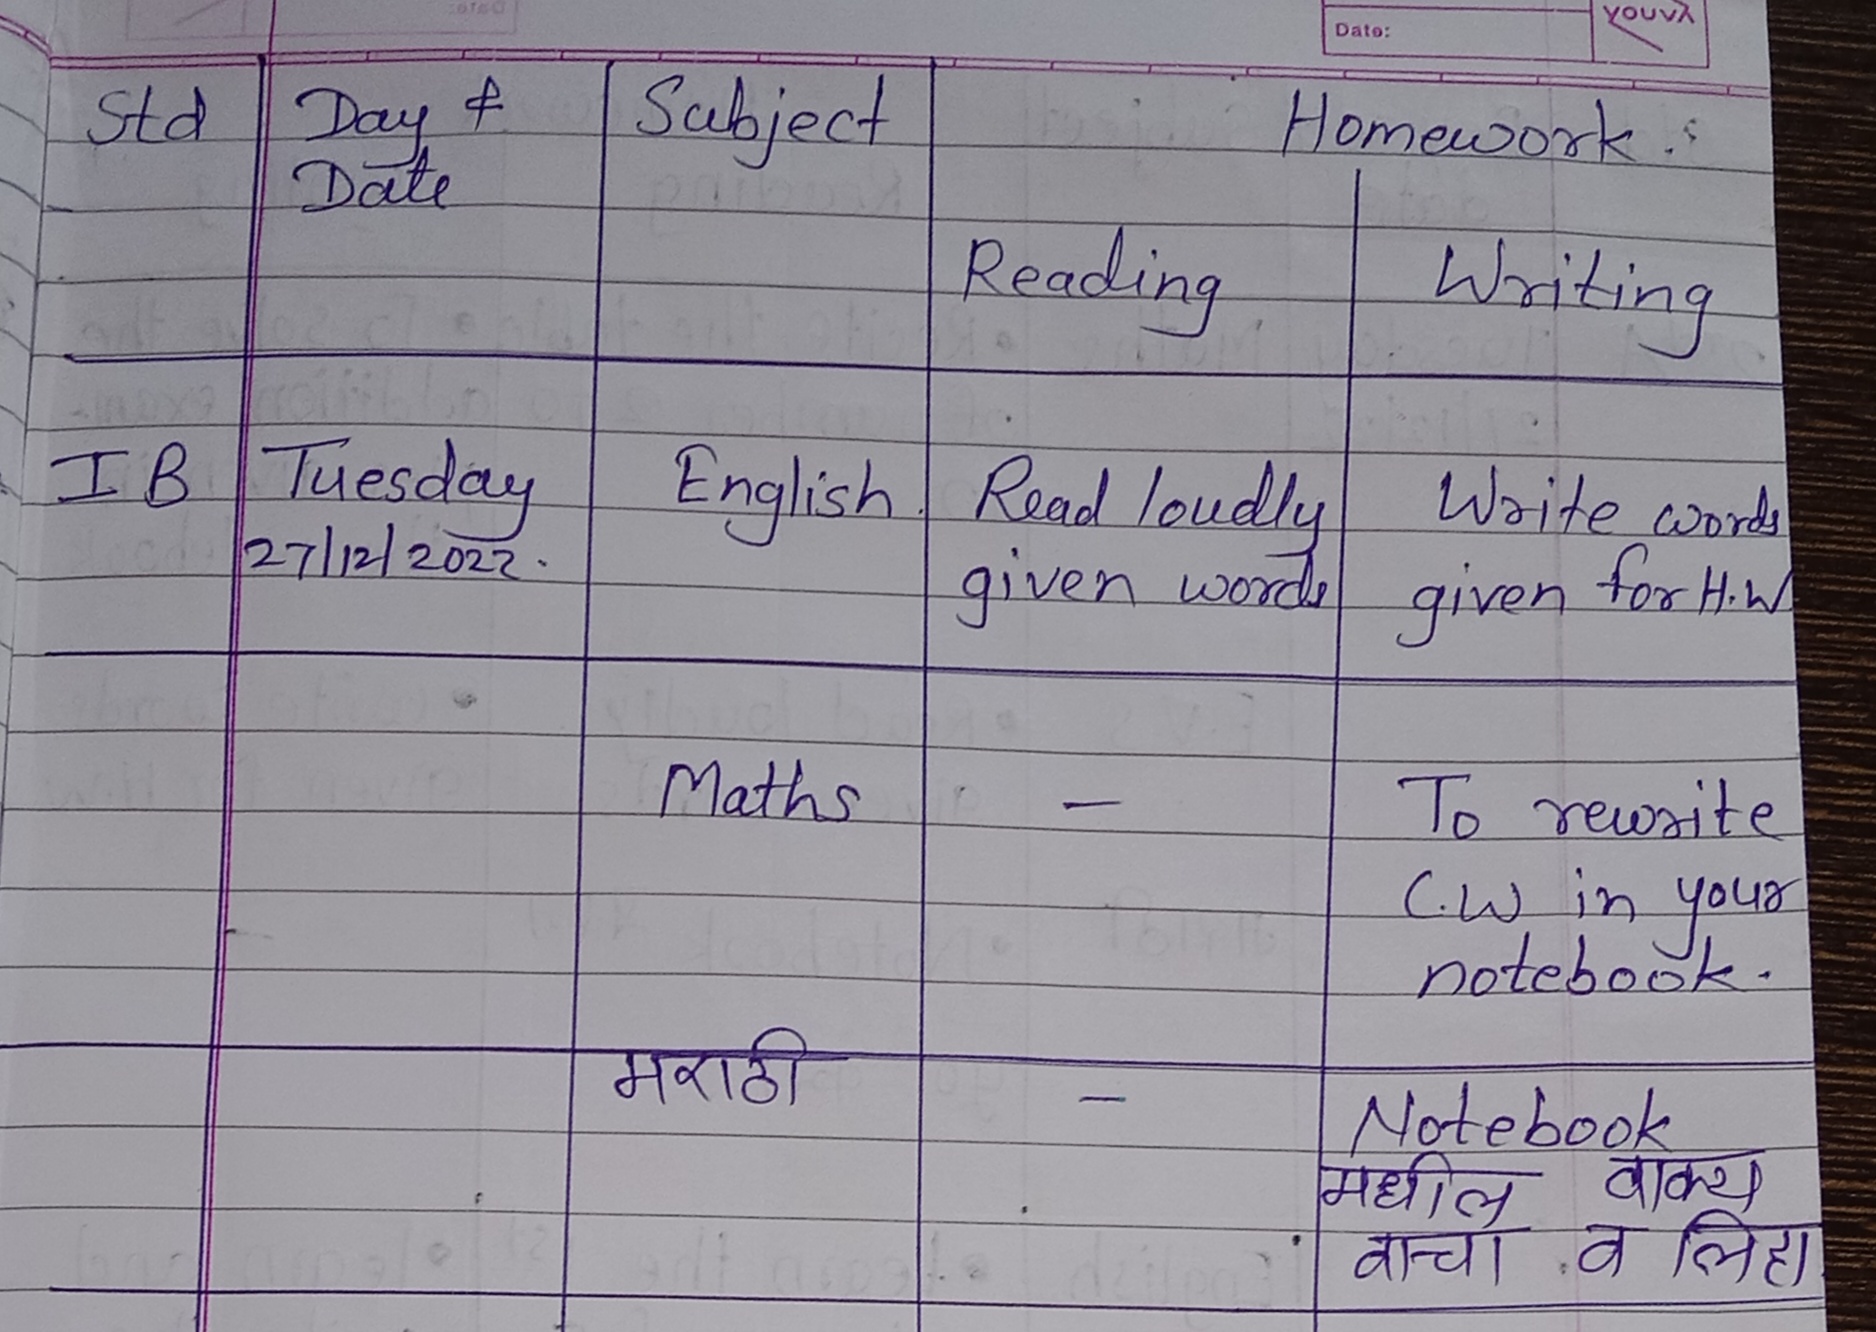 Date:
youva
Std Day & Subject Homework :
Date
Reading Writing
I B Tuesday English. Read loudly Write words
27/12/2022. given words given for H.W
Maths — To rewrite
C.W in your
notebook.
मराठी — Notebook
मधील वाक्य
वाचा व लिहा